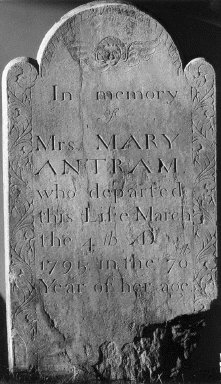 In memory
of
Mrs. MARY
ANTRAM
who departed
this Life March
the 4th
in the 76
Year of her age